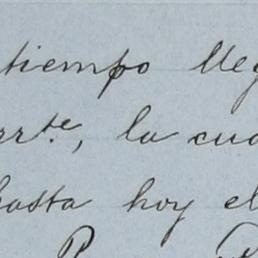 tiempo lleg
rrte, la cua
hasta hoy el
P